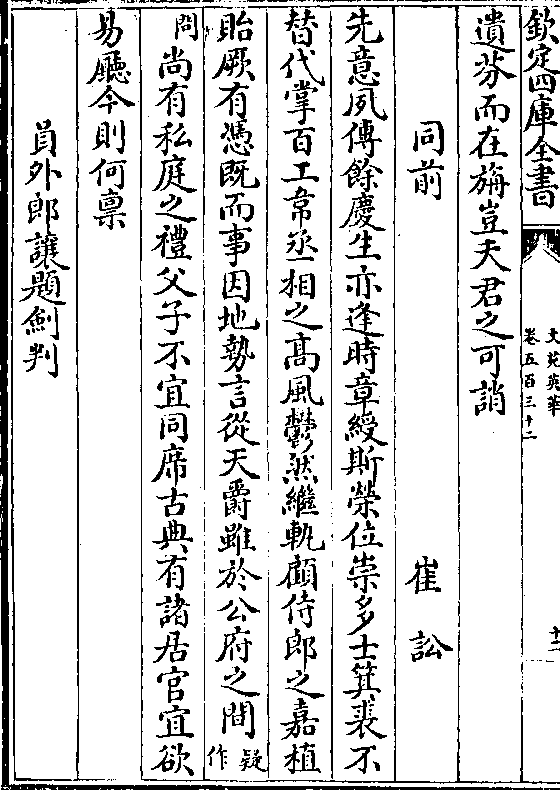 欽定四庫全書
文苑英華
卷五百三十二
十二
遺芬而在旃豈天君之可誚
同前 崔訟
先意夙傳餘慶生亦逢時章綬斯榮位崇多士箕裘不
替代掌百工韋丞相之高風鬱然繼軌顧侍郎之嘉植
貽厥有憑既而事因地勢言從天爵雖於公府之間疑作
問尚有私庭之禮父子不宜同席古典有諸居官宜欲
易廳今則何禀
員外郎讓題劍判